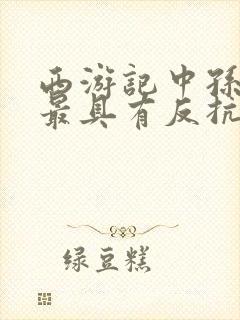 西游记中孙
最具有反抗
绿豆糕